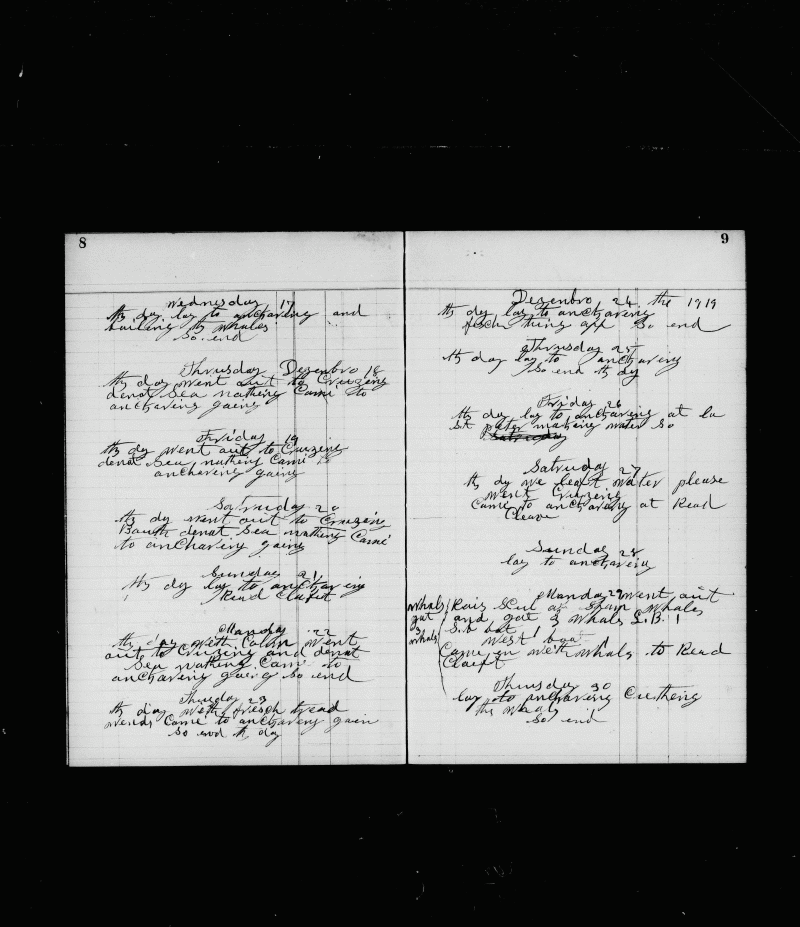 8
Wednesday 17
th day lay to ancharing and
builing th whales
So end
Thrusday Dezenbro 18
th day went out to Cruzing
denat Sea nathing Came to
anCharing gaing
Friday 19
th dy went out to Cruzing
denat Sea nathing Came to
ancharing gaing
Satruday 20
th dy went out to Cruzing
Bauth denat Sea nathing Came
to anCharing gaing
Sunday 21
th dy lay to ancharing
Read Claift
Monday 22
th day with Calm went
out to Cruizing and denat
Sea nathing Came to
anCharing gaing So end
Thusday 23
th day with fresch tread
wends Came to ancharing gain
So end th day
9
Dezenbro 24 the 1919
th dy lay to ancharing
fisch thing off So end
Thrusday 25
th day lay to ancharing
So end th dy
Friday 26
th dy lay to ancharing at la
water So
Satruday
Satruday 27
th dy we leaft water please
went Cruzeing
Came to ancharing at Read
Cleave
Sunday 28
lay to ancharing
Manday 29 went out
Whals
gat
3
whals
Rais Scul of Spam Whales
and gat 3 whals L.B. 1
S.b bat
West 1 boat
Came in with whals to Read
Claift
Thusday 30
lay to ancharing Cutheng
the whals
So end